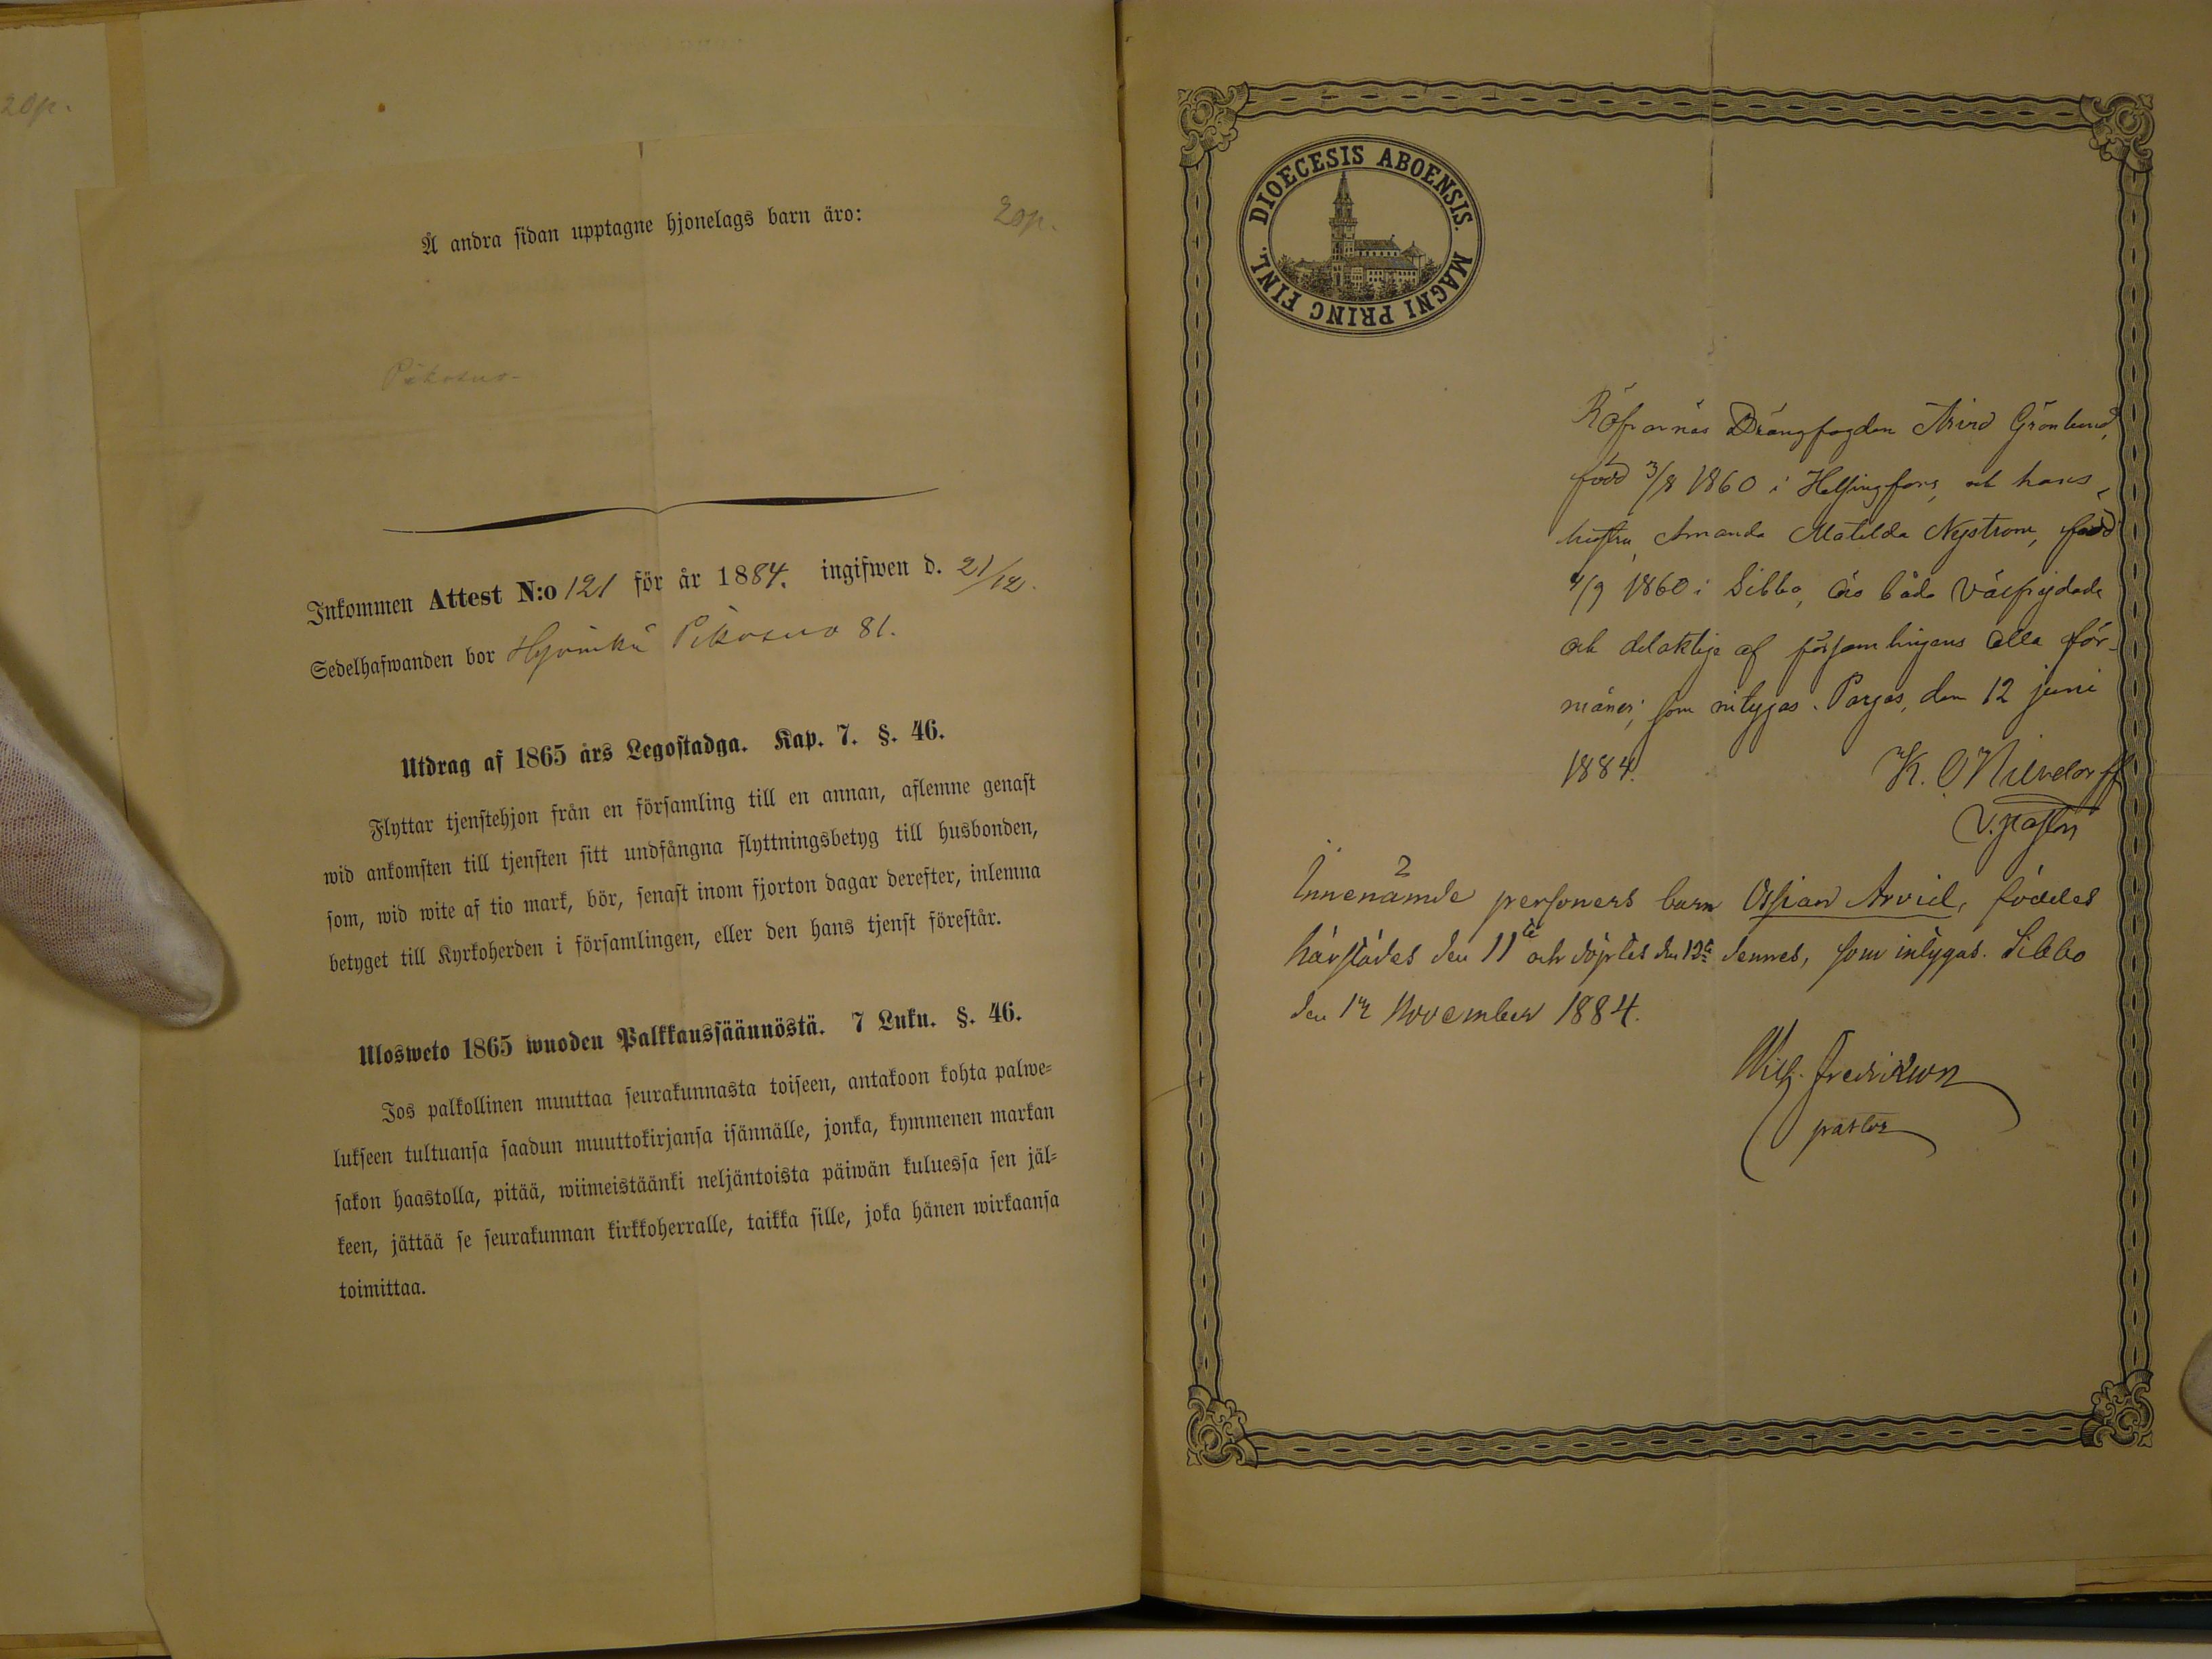 20p.
Å andra sidan upptagne hjonelags barn äro:
20p.
Pikosuo
Inkommen Attest N:o 121 för år 1884. ingifwen d. 21/12.
Sedelhafwanden bor Hyvinkä Pikosuo 81.
Utdrag af 1865 års Legostadga. Kap. 7. §. 46.
Flyttar tjenstehjon från en församling till en annan, aflemne genast
wid ankomsten till tjensten sitt undfångna flyttningsbetyg till husbonden,
som, wid wite af tio mark, bör, senast inom fjorton dagar derefter, inlemna
betyget till Kyrkoherden i församlingen, eller den hans tjenst förestår.
Ulosweto 1865 wuoden Palkkaussäännöstä. 7 Luku. §. 46.
Jos palkollinen muuttaa seurakunnasta toiseen, antakoon kohta palwe=
lukseen tultuansa saadun muuttokirjansa isännälle, jonka, kymmenen markan
sakon haastolla, pitää, wiimeistäänki neljäntoista päiwän kuluessa sen jäl=
keen, jättää se seurakunnan kirkkoherralle, taikka sille, joka hänen wirkaansa
toimittaa.
DIOECESIS ABOENSIS. MAGNI PRINC FINL.
Drängfogden Arvid Grönlund,
född 3/8 1860 i Helsingfors, och hans
hustru, Amanda Matilda Nyström, född
4/9 1860 i Sibbo, äro båda välfrejdade
och delaktige af församlingens alla för-
måner; som intygas. Pargas, den 12 juni
1884. K. O.
V. pastor
Innenämde 2 personers barn Ossian Arvid, föddes
härstädes den 11te och döptes den 12te dennes, som intygas. Sibbo
den 12 November 1884.
Wilh. Fredrikson
pastor